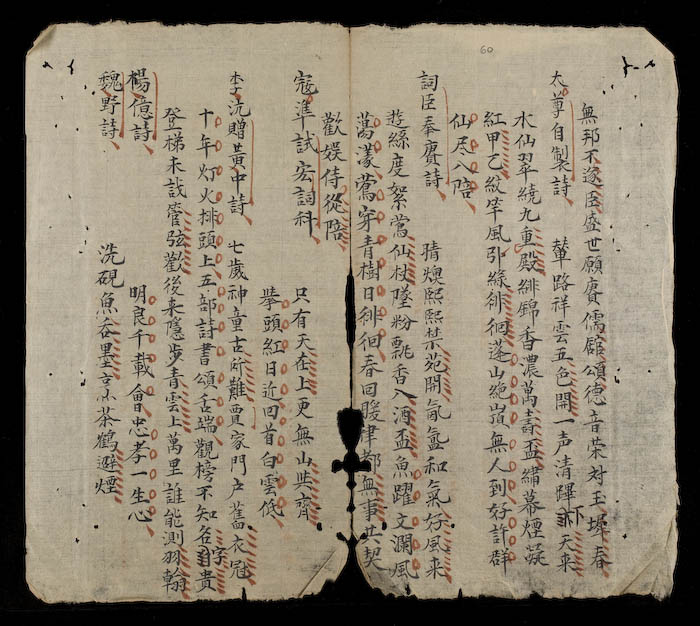 60
無邦不遂臣盛世願賡儒館頌德音荣対玉墀春
大尊自製詩 輦路祥雲五色開一声清蹕下天来
水仙翠繞九重殿緋錦香濃萬壽盃繡幕煙凝
紅甲乙紋竿風引緑徘徊蓬山絶頂無人到好許群
仙尽入陪
詞臣奉賡詩 晴燠熙熙禁苑開氤氳和氣好風来
遊絲度絮鶯仙杖墜粉飄香入酒盃魚躍文瀾風
萬漾鶯穿青樹日徘徊春回暖律都無事共契
歡娱侍從陪
宼準試宏詞科 只有天在上更無山與齊
擧頭紅日近回首白雲低
李沆贈黄中詩 七歲神童古所難賈家門户舊衣冠
十年灯火排頭上五部詩書頌舌端觀榜不知名字貴
登梯未戠管弦歡後来隱步青雲上萬里誰能測羽翰
楊億詩 明良千載會忠孝一生心
魏野詩 洗硯魚吞墨烹茶鶴避煙